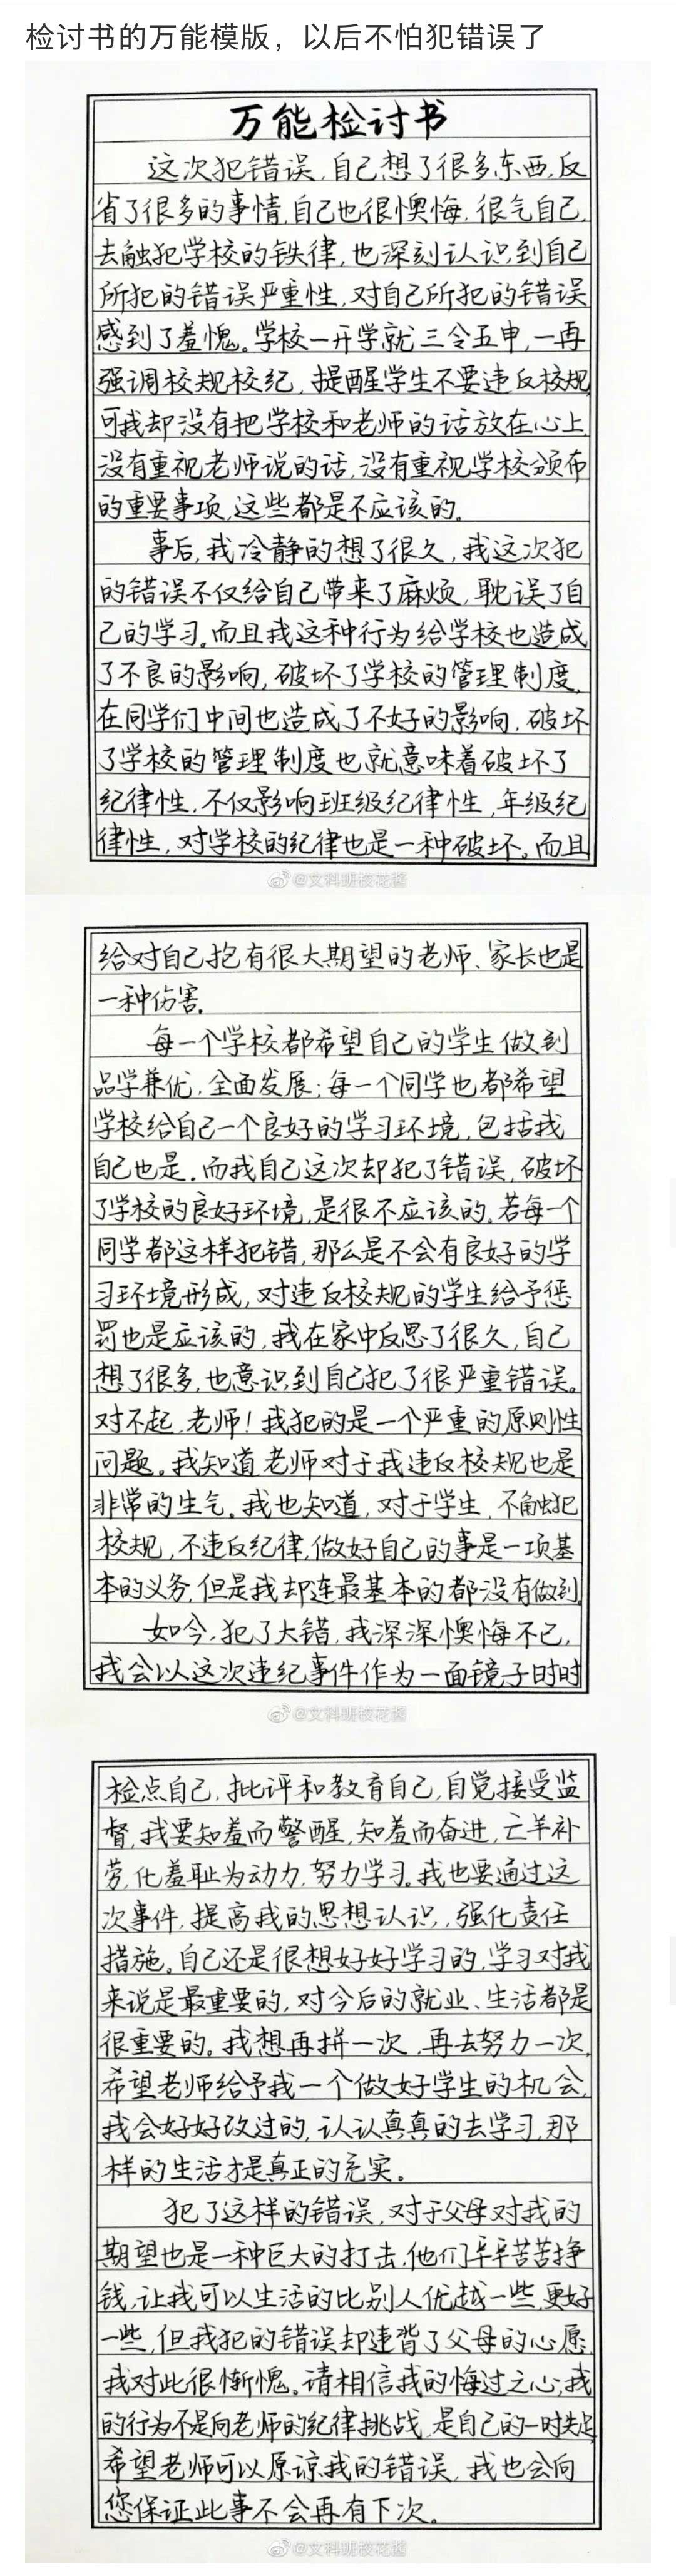 检讨书的万能模版，以后不怕犯错误了
万能检讨书
这次犯错误，自己想了很多东西，反
省了很多的事情，自己也很懊悔，很气自己，
去触犯学校的铁律，也深刻认识到自己
所犯的错误严重性，对自己所犯的错误
感到了羞愧。学校一开学就三令五申，一再
强调校规校纪，提醒学生不要违反校规，
可我却没有把学校和老师的话放在心上，
没有重视老师说的话，没有重视学校颁布
的重要事项，这些都是不应该的。
事后，我冷静的想了很久，我这次犯
的错误不仅给自己带来了麻烦，耽误了自
己的学习。而且我这种行为给学校也造成
了不良的影响，破坏了学校的管理制度，
在同学们中间也造成了不好的影响，破坏
了学校的管理制度也就意味着破坏了
纪律性，不仅影响班级纪律性，年级纪
律性，对学校的纪律也是一种破坏。而且
@文科班校花酱
给对自己抱有很大期望的老师、家长也是
一种伤害。
每一个学校都希望自己的学生做到
品学兼优，全面发展；每一个同学也都希望
学校给自己一个良好的学习环境，包括我
自己也是。而我自己这次却犯了错误，破坏
了学校的良好环境，是很不应该的。若每一个
同学都这样犯错，那么是不会有良好的学
习环境形成，对违反校规的学生给予惩
罚也是应该的，我在家中反思了很久，自己
想了很多，也意识到自己犯了很严重错误。
对不起，老师！我犯的是一个严重的原则性
问题。我知道，老师对于我违反校规也是
非常的生气。我也知道，对于学生，不触犯
校规，不违反纪律，做好自己的事是一项基
本的义务，但是我却连最基本的都没有做到。
如今，犯了大错，我深深懊悔不已，
我会以这次违纪事件作为一面镜子时时
@文科班校花酱
检点自己，批评和教育自己，自觉接受监
督，我要知羞而警醒，知羞而奋进，亡羊补
劳，化羞耻为动力，努力学习。我也要通过这
次事件，提高我的思想认识，强化责任
措施。自己还是很想好好学习的，学习对我
来说是最重要的，对今后的就业、生活都是
很重要的。我想再拼一次，再去努力一次，
希望老师给予我一个做好学生的机会，
我会好好改过的，认认真真的去学习，那
样的生活才是真正的充实。
犯了这样的错误，对于父母对我的
期望也是一种巨大的打击，他们辛辛苦苦挣
钱，让我可以生活的比别人优越一些，更好
一些，但我犯的错误却违背了父母的心愿，
我对此很惭愧。请相信我的悔过之心，我
的行为不是向老师的纪律挑战，是自己的一时失足，
希望老师可以原谅我的错误，我也会向
您保证此事不会再有下次。
@文科班校花酱